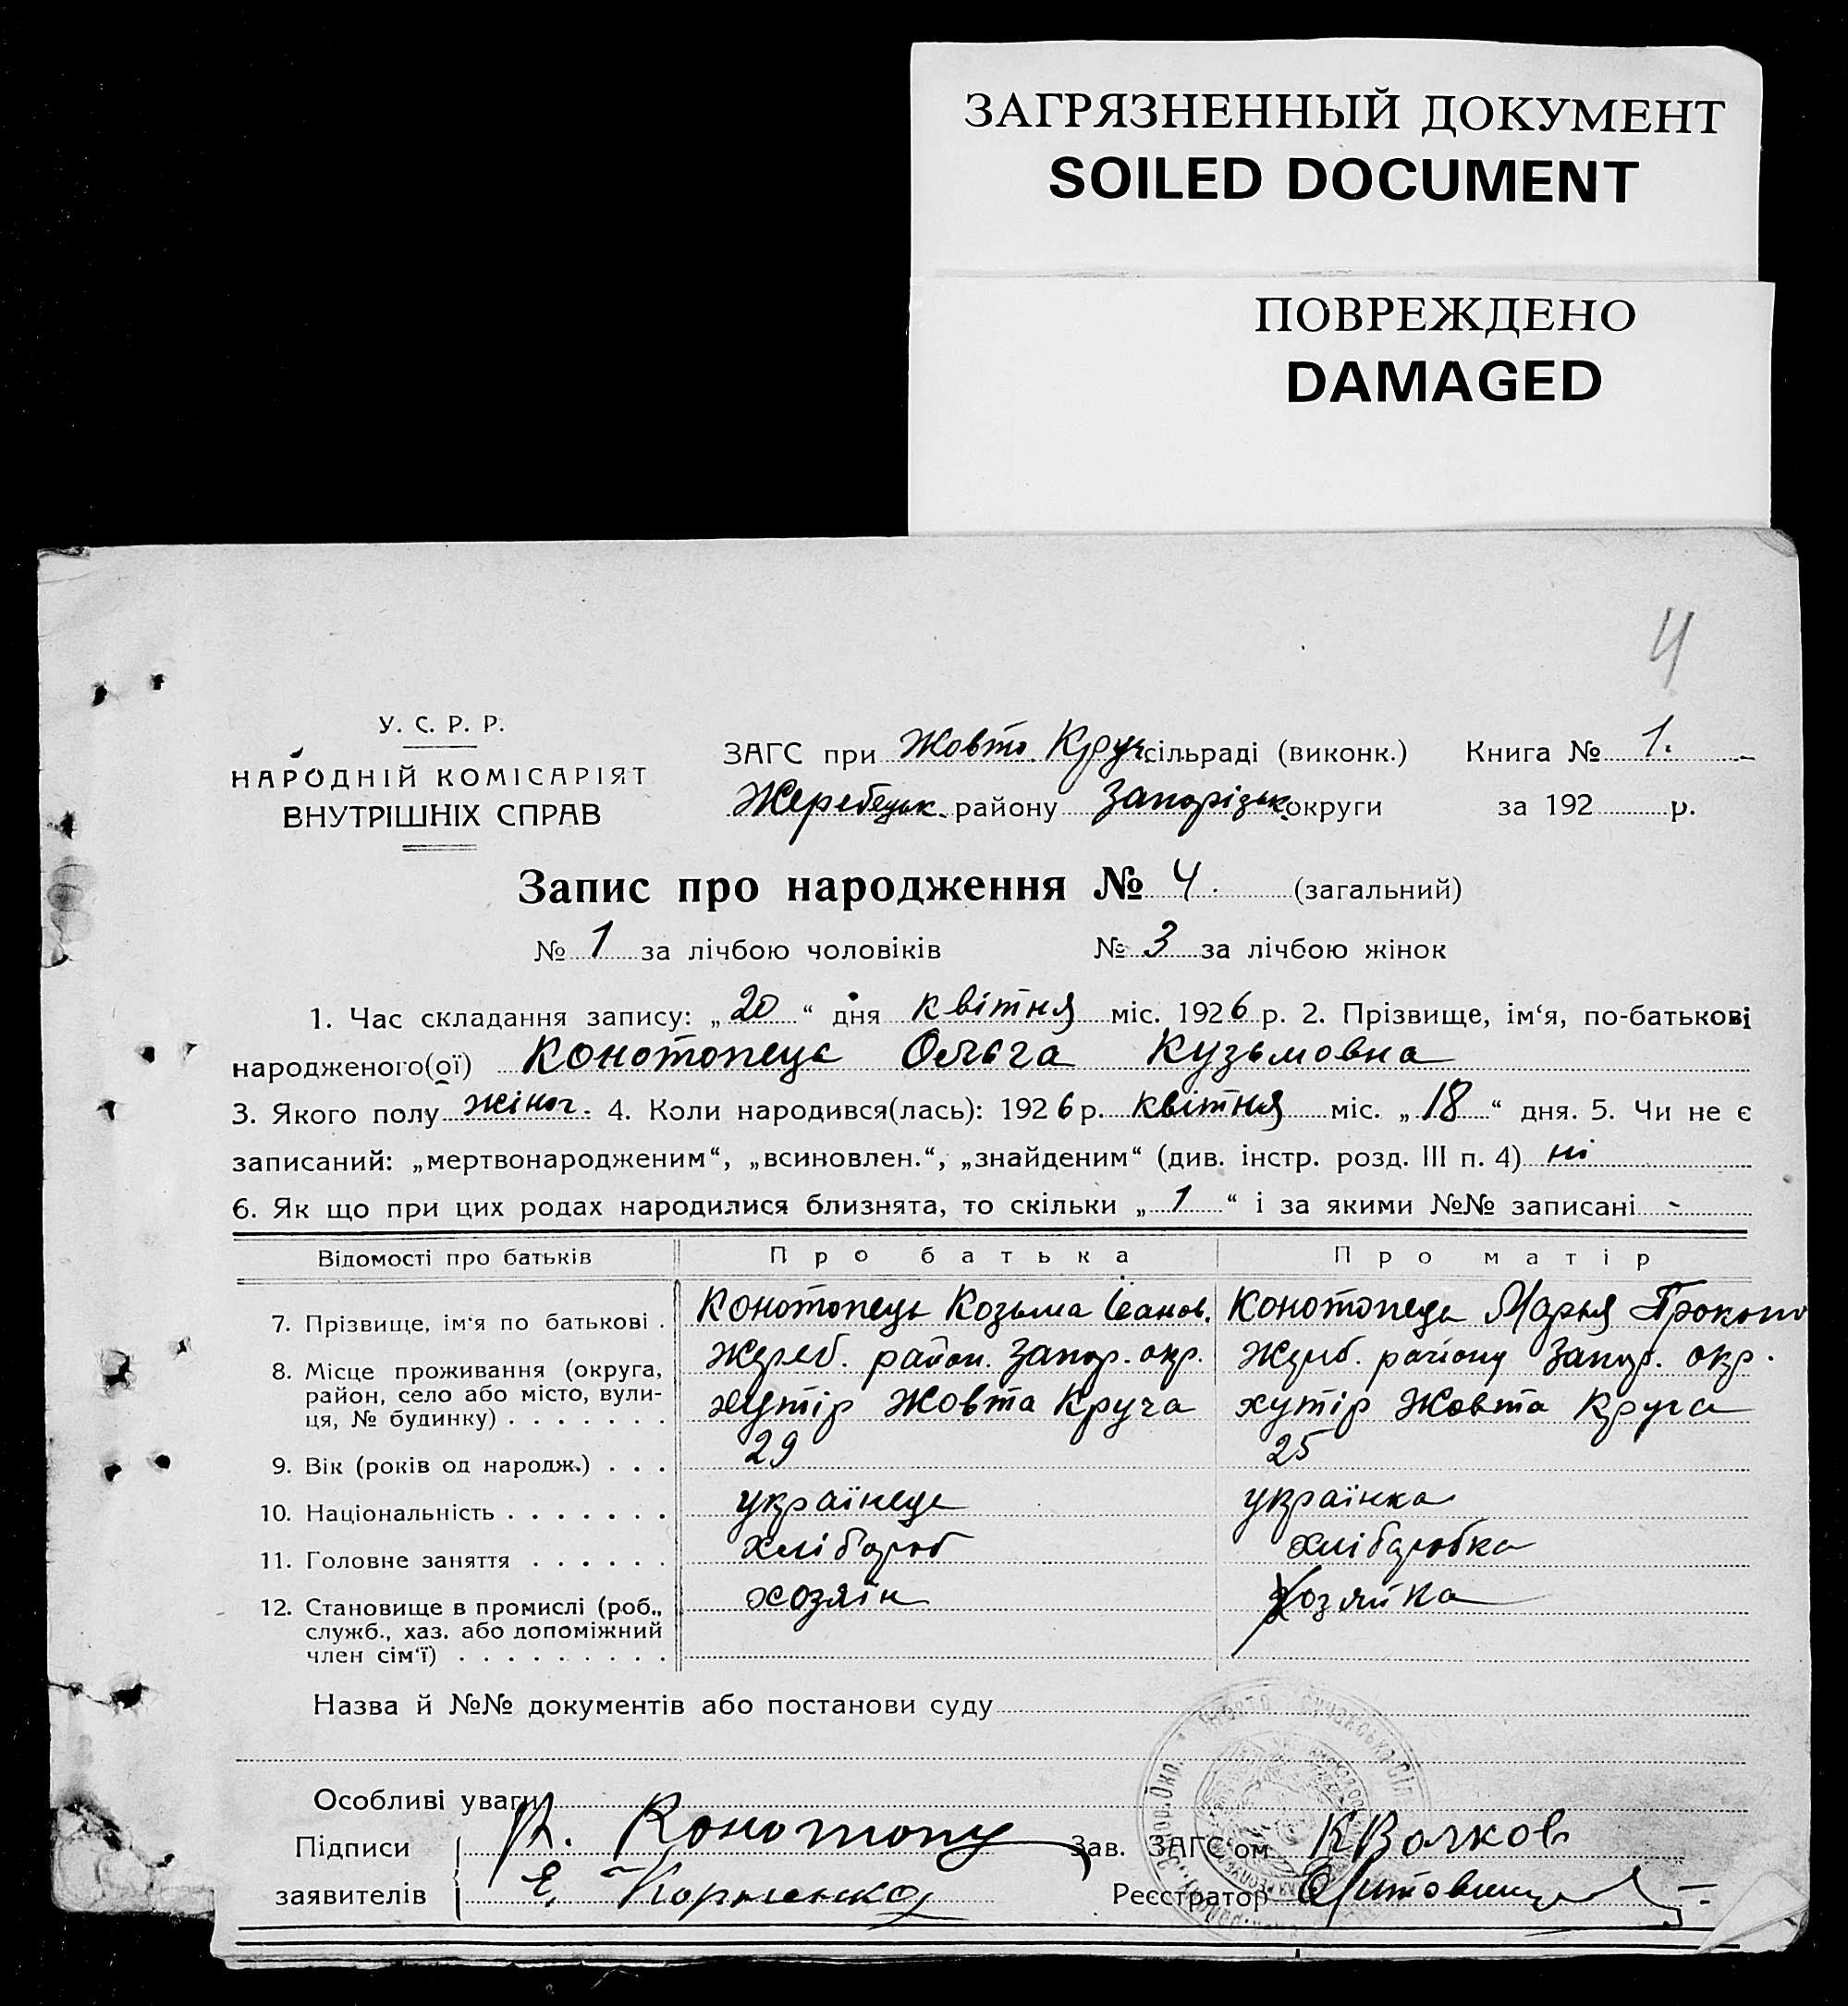 ЗАГРЯЗНЕННЫЙ ДОКУМЕНТ
SOILED DOCUMENT
ПОВРЕЖДЕНО
DAMAGED
4
У. С. Р. Р.
НАРОДНІЙ КОМІСАРІЯТ
ВНУТРІШНІХ СПРАВ
ЗАГС при Жовто Круч. сільраді (виконк.) Книга № 1.
Жеребецьк. району Запорізьк. округи за 192 р.
Запис про народження № 4. (загальний)
№ 1 за лічбою чоловіків № 3 за лічбою жінок
1. Час складання запису: „20“ дня квітня міс. 1926 р. 2. Прізвище, ім‘я, по-батькові
народженого(ої) Конотопець Ольга Кузьмовна
3. Якого полу жіноч. 4. Коли народився(лась): 1926 р. квітня міс. „18“ дня. 5. Чи не є
записаний: „мертвонародженим“, „всиновлен.“, „знайденим“ (див. інстр. розд. III п. 4) ні
6. Як що при цих родах народилися близнята, то скільки „1“ і за якими №№ записані -
Відомості про батьків Про батька Про матір
7. Прізвище, ім‘я по батькові . Конотопець Козьма Іванов. Конотопець Марья Прокопо
8. Місце проживання (округа, район, село або місто, вулиця, № будинку) . . . . . . . Жереб. район. Запор. окр. Жереб. району Запор. окр.
хутір Жовта Круча хутір Жовта Круча
9. Вік (років од народж.) . . . 29 25
10. Національність . . . . . . . українець українка
11. Головне заняття . . . . . . хлібороб хліборобка
12. Становище в промислі (роб., служб., хаз. або допоміжний член сім‘ї) . . . . . . . . . хозяїн хозяйка
Назва й №№ документів або постанови суду
Особливі уваги
Підписи К. Конотопец Зав. ЗАГС‘ом К Волков
заявителів Е. Реєстратор